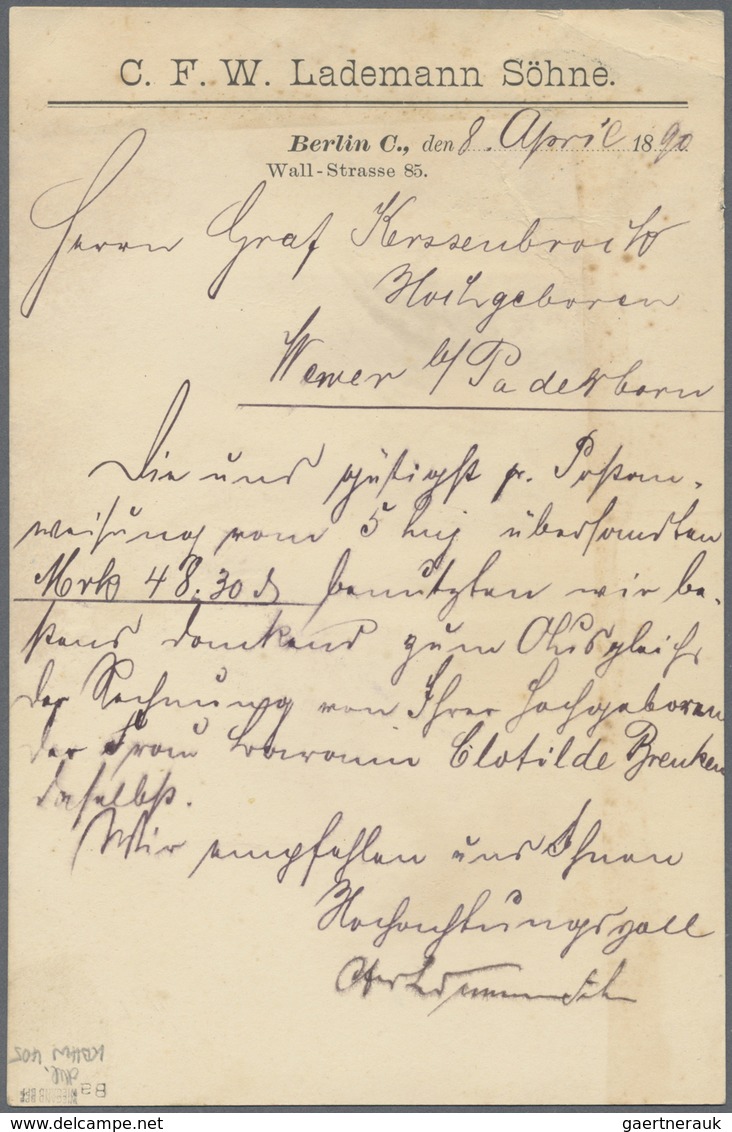 C. F. W. Lademann Söhne.
Berlin C., den 8. April 1890
Wall-Strasse 85.
Herrn Graf Kerssenbrock
Hochgeboren
Wewer b/ Paderborn
Die uns gütigst p. Postan-
weisung vom 5 huj übersandten
Mrk 48.30 ₰ benutzten wir be-
stens dankend zum Ausgleich
der Rechnung von Ihrer Hochgeboren
der Frau Baronin Clotilde Brenken
daselbst.
Wir empfehlen uns Ihnen
Hochachtungsvoll
gaertnerauk